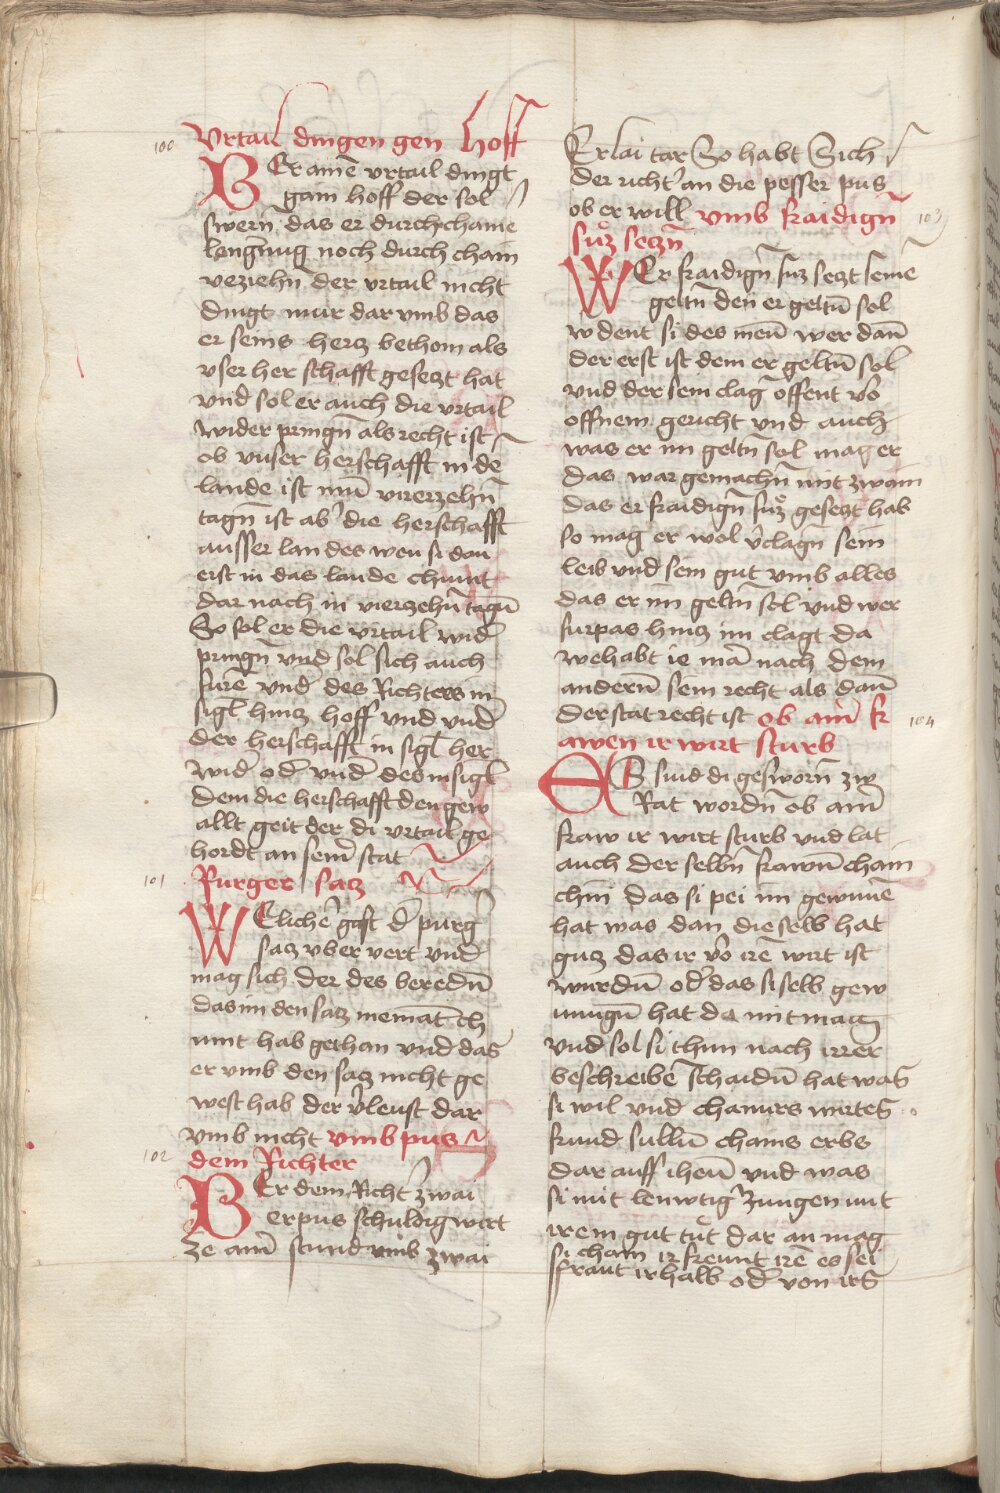 100 Vrtail dingen gen hoff
Er ainē vrtail dingt
gain hoff der sol
swern das er durch chaine
lengnug noch durch chain
veziehn̄ der vrtail nicht
dingt nur dar vmb das
er seins hertz bethom als
vser her schafft gesetzt hat
vnd sol er auch die vrtail
wider pringn̄ als recht ist
ob vnser herschafft in dē
lande ist nur̄ virerzehn̄
tagn̄ ist ab' die herschafft
ausser landes wen si dan
erst in das lande chumt
dar nach in vierzehn̄ tagn̄
So sol er die vrtail wid'
pringn̄ vnd sol sich auch
furē vnd' des Richters in
sigl hintz hoff vnd vnd'
der herschafft in sigl her
wid' od' vnd' des insigl
dem die herschafft den gew
allt geit der di vrtail ge
hordt an sein' stat
101 Purger satz
Welichē gast d' purg
satz vber vert vnd
mag sich der des beredn̄
das im den satz niemāt ch
unt hab gethan vnd das
er vmb den satz nicht ge
west hab der v'leust dar
vmb nicht vmb pus
102 dem Richter
Er dem Richt' zwai
er pus schuldig wirt
ze ainer stund vmb zwai
Erlai tar So habt Sich
der richt' an die pesser pus
ob er will vmb fraidign̄ 103
fuͦz setzn̄
Wer fraidign̄ fuz setzt seinē
geltn̄ den er geltn̄ sol
w dent si des mein̄ wer dan̄
der erst ist dem er geltn̄ sol
vnd der sein clag offent vō
offnem gericht vnd auch
was er im geltn̄ sol mag er
das war gemachn̄ mit zwain
das er fraidign̄ fuͦz gesetzt hab
so mag er wol v'clagn̄ sein
leib vnd sein gut vmb alles
das er im geltn̄ sol vnd wer
furpas hintz im clagt da
wehabt ie mā nach dem
anderm̄ sein recht als dan̄
der stat recht ist ob ain' fr 104
awen ir wirt sturb
Es sind di gesworn̄ zw
Rat wordn̄ ob ain'
fraw ir wirt sturb vnd lat
auch der selbn̄ frawn̄ chain
chin das si pei im gewunē
hat was dan die selb hat
gutz das ir vō irē wirt ist
wurdn̄ od' das si selb gew
unngn̄ hat da mit mag
vnd sol si thun nach irrer
beschreibē schaidn̄ hat was
si wil vnd chamrs wirtes
frund sulln̄ chains erbs
dar auff ihen̄ vnd was
si mit lenwtig' zungen mit
irem gut tuͤt dar an mag
si chain ir freunt irē es sei
frawt irhalb od' von irs